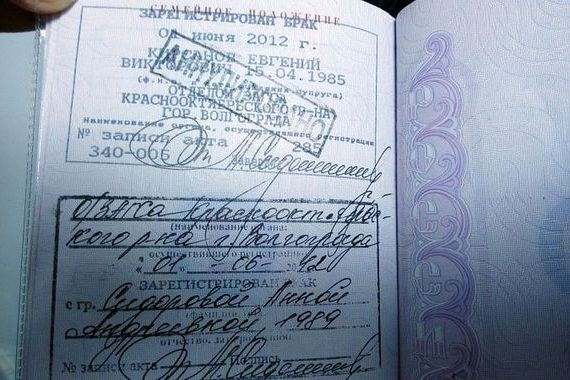 СЕМЕЙНОЕ ПОЛОЖЕНИЕ
ЗАРЕГИСТРИРОВАН БРАК
01 июня 2012 г.
ЕВГЕНИЙ
ВИКТОРОВИЧ 15.04.1985
супруга)
ОТДЕЛОМ
КРАСНООКТЯБРЬСКОГО Р-НА
ГОР. ВОЛГОГРАДА
Наименование органа, осуществившего регистрацию
№ записи акта 285
340-006
ОЗАГСа Краснооктябрьс-
кого р-на г. Волгограда
(наименование органа:
осуществившего регистрацию)
"01" - 06 - 2012
ЗАРЕГИСТРИРОВАН БРАК
с гр. Сидоровой Анной
Андреевной, 1989
отчество, дата рождения)
№ записи акта Подпись